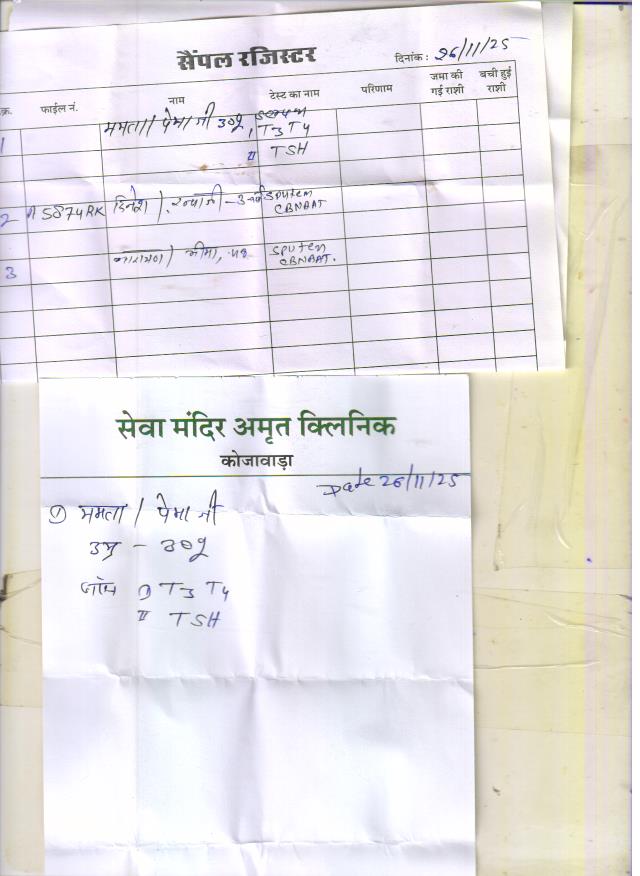 सैंपल रजिस्टर
दिनांक : 26/11/25
क्र. फाईल नं. नाम टेस्ट का नाम परिणाम जमा की गई राशी बची हुई राशी
1 ममता / पेमा जी 30y, T3 T4
II TSH
2 5874RK दिनेश / Sputem
CBNAAT
3 sputem
CBNAAT.
सेवा मंदिर अमृत क्लिनिक
कोजावाड़ा
Date 26/11/25
1) ममता / पेमा जी
उम्र - 30y
जाँच 1) T3 T4
II TSH